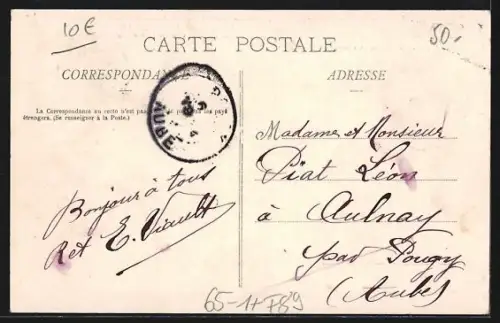 10€
50.
CARTE POSTALE
CORRESPONDANCE
ADRESSE
La Correspondance au verso n'est pas les pays
étrangers. (Se renseigner à la Poste.)
AUBE
Bonjour à tous
Ret E. Viault
Madame et Monsieur
Piat Léon
à Aulnay
par Pougy
(Aube)
65-11789